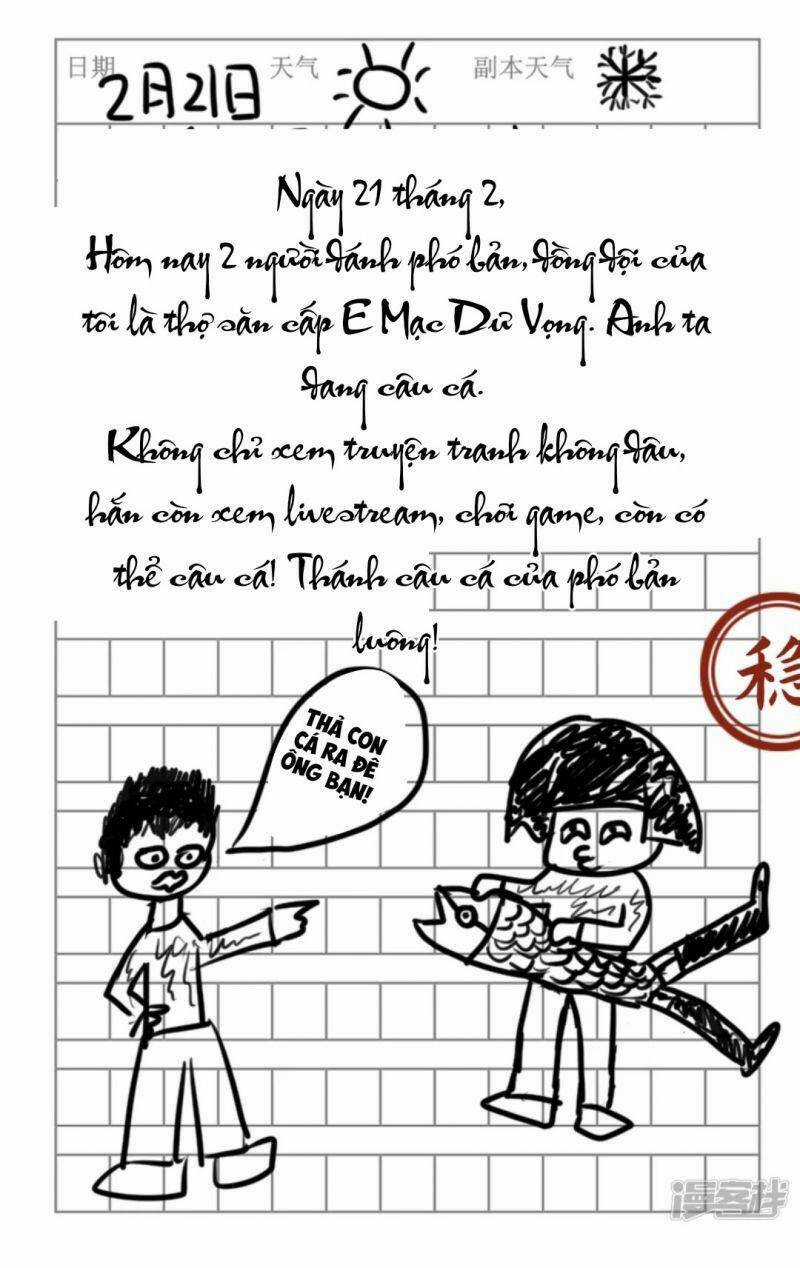 日期 2月21日 天气 副本天气
Ngày 21 tháng 2,
Hôm nay 2 người đánh phó bản, đồng đội của
tôi là thợ săn cấp E Mạc Dữ Vọng. Anh ta
đang câu cá.
Không chỉ xem truyện tranh không đâu,
hắn còn xem livestream, chơi game, còn có
thể câu cá! Thánh câu cá của phó bản
luông!
稳
THẢ CON
CÁ RA ĐÊ
ÔNG BẠN!
漫客栈